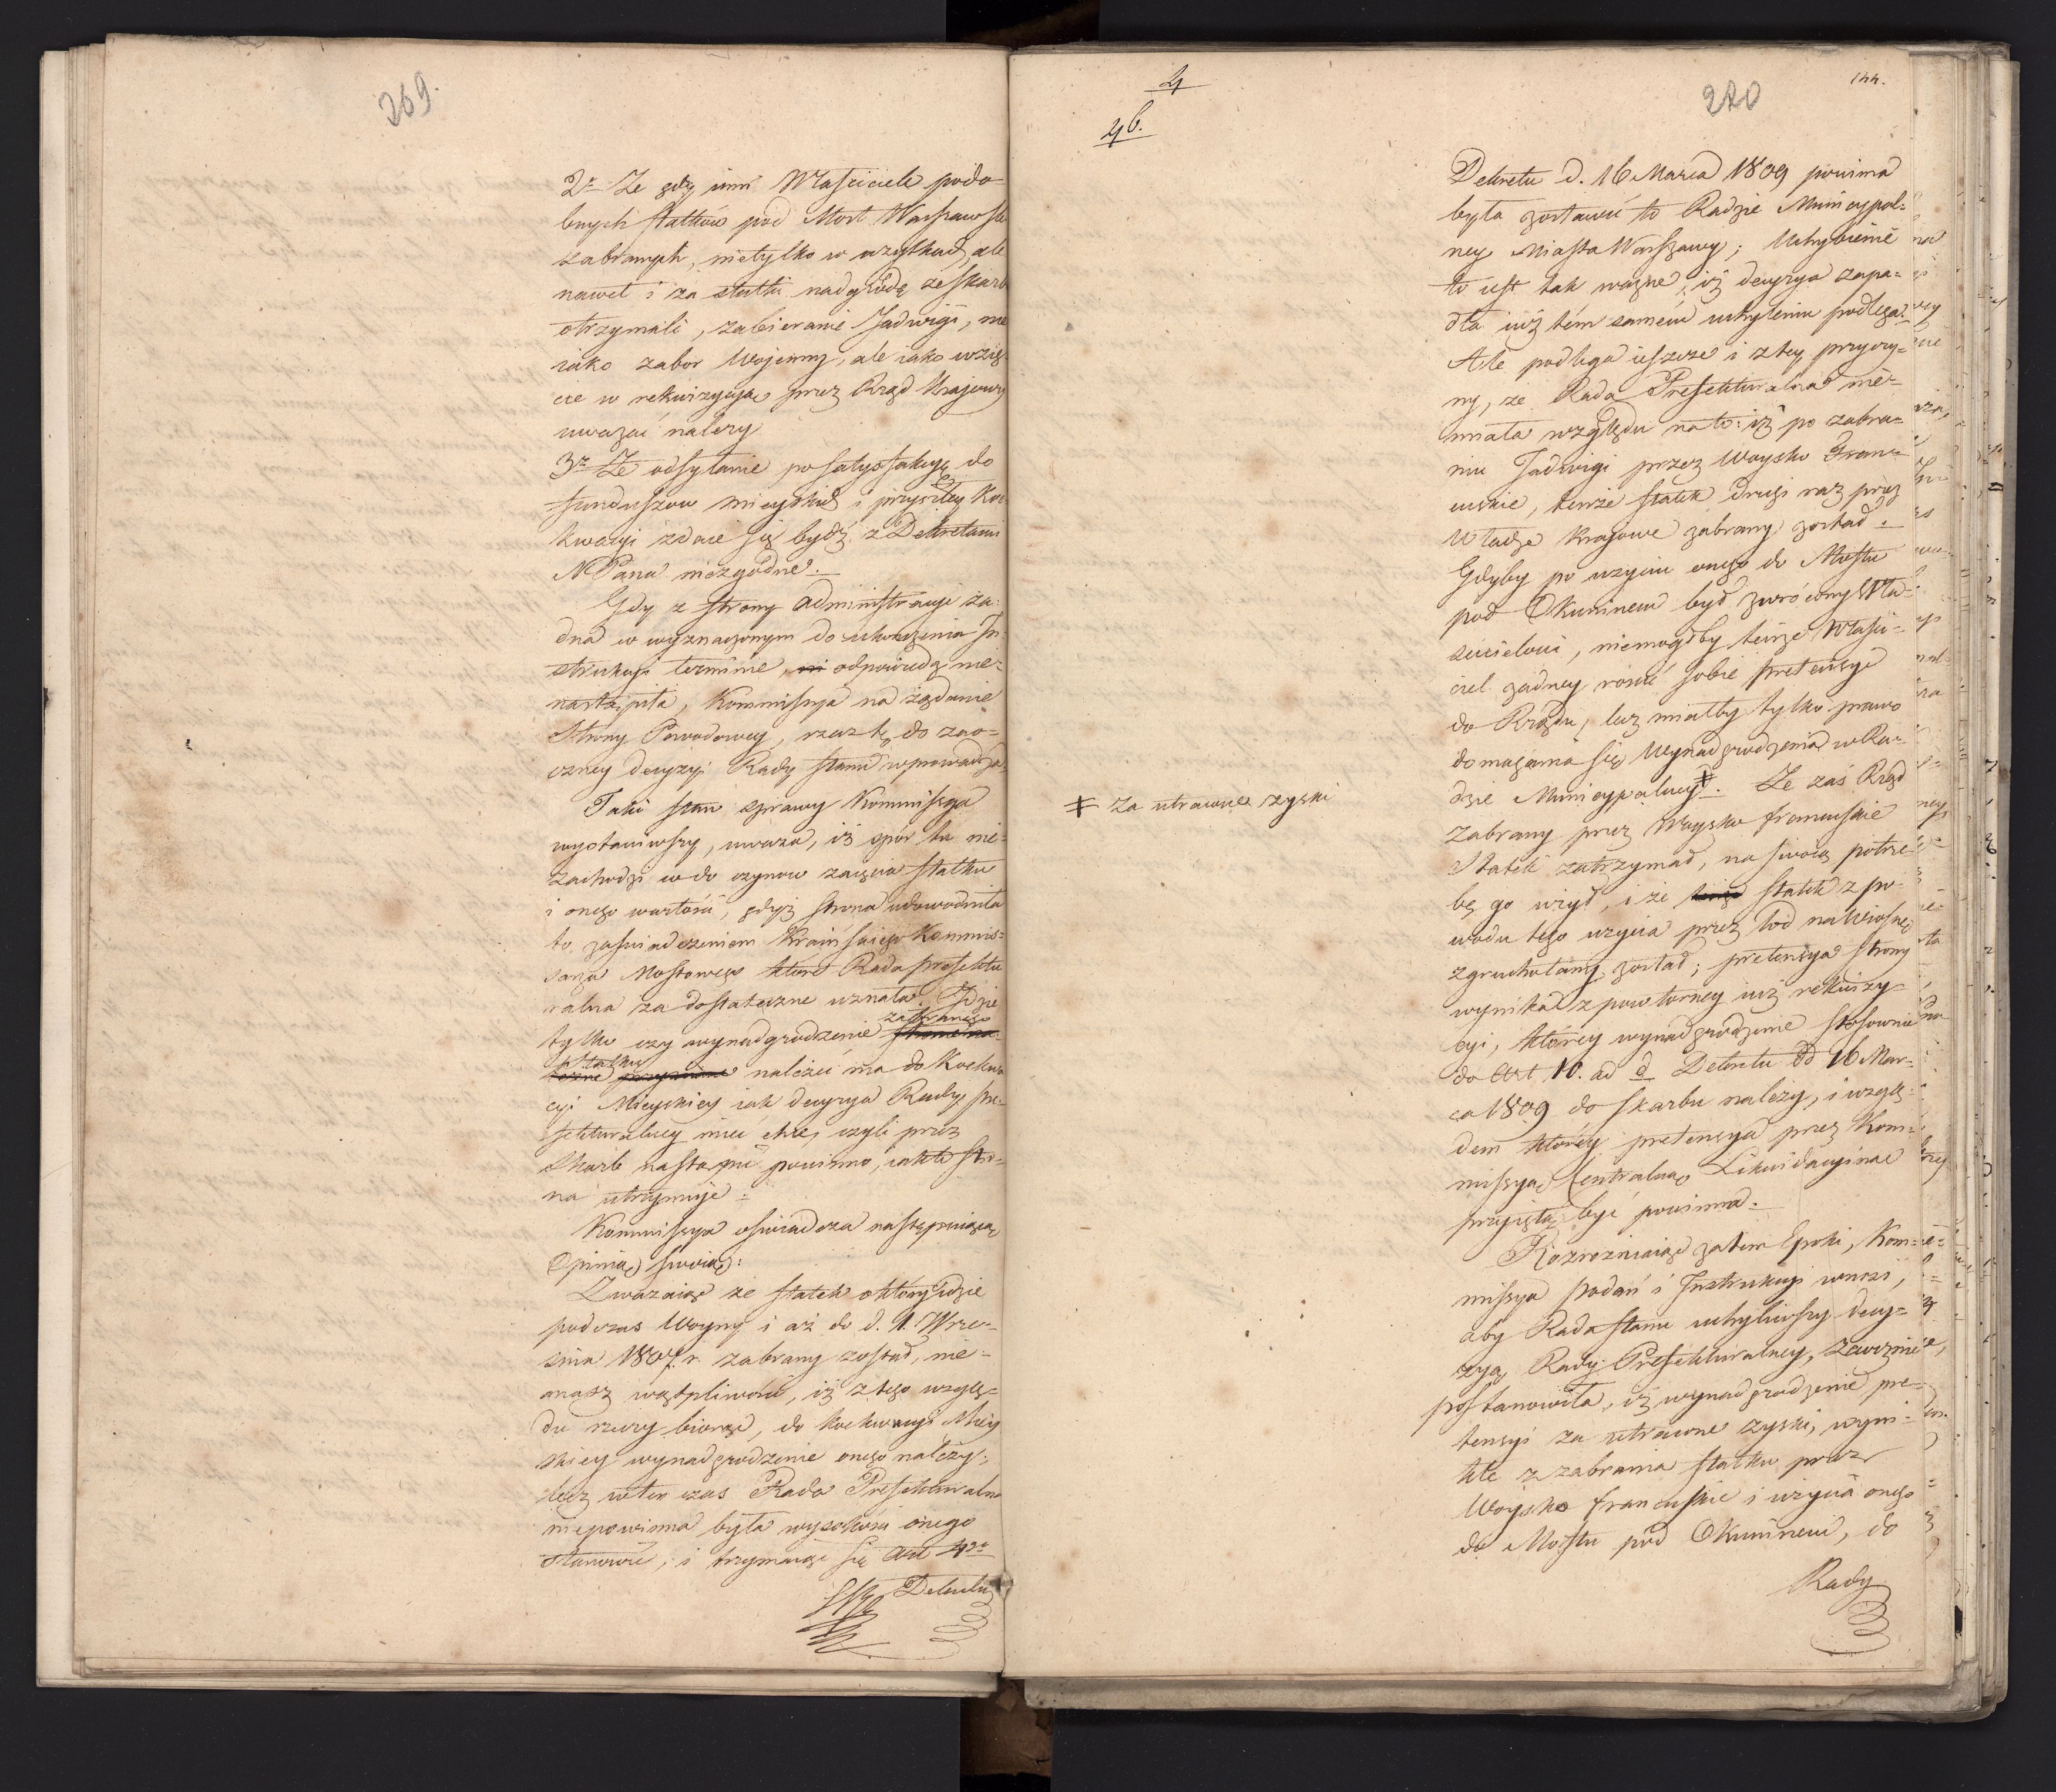 269.
2re Ze gdy inni Właściciele podo=
bnych statków pod Most Warszawski
zabranych, nietylko w użytkach, ale
nawet i za statki nadgrodę ze skarb
otrzymali, zabieranie Jadwigi, nie
iako zabor Wojenny, ale iako wzię=
cie w rekwizycyą przez Rząd Krajowy
uważać należy
3re Ze odsyłanie po satysfakcyę do
funduszow mieyskich i przyszłey Ko=
ekwacyi zdaie się bydź z Dekretami
N Pana niezgodne.
Gdy z strony Administracyi ża=
dna w wyznaczonym do ukończenia In=
strukcyi terminie, odpowiedz nie=
nastąpiła, Kommissya na żądanie
Strony Powodowey, rzecz tę do zao=
czney decyzyi Rady Stanu wprowadza.
Taki stan sprawy Kommissya
wystawiwszy, uważa, iż spór tu nie=
zachodzi w do czynow zaięcia statku
i onego wartości, gdyż strona udowodniła
to zaświadczeniem Kraińskiego Kommis=
sarza Mostowego które Rada Prefektu
ralna za dostateczne uznała. Idzie
tylko czy wynadgrodzenie zabranego
statku należeć ma do Koekwa
cyi Mieyskiey iak decyzya Rady Pre=
fekturalney mieć chce, czyli przez
Skarb nastąpić powinno, iak to stro=
na utrzymuje.
Kommissya oświadcza następuiącą
Opinią swoią:
Zważaiąc że statek o który idzie
podczas Woyny i aż do d. 1. Wrze=
śnia 1807. r. zabrany został, nie=
masz wątpliwości, iż z tego wzglę=
du rzeczy biorąc, do koekwacyi Miey
skiey wynadgrodzenie onego należy;
lecz wten czas Rada Prefekturalna
niepowinna była wysokości onego
stanowić, i trzymaiąc się Art 4go
Dekretu
4
4 b.
220
144.
Dekretu d. 16 Marca 1809 powinna
była zostawić to Radzie Municypal=
ney Miasta Warszawy; Uchybienie
to iest tak ważne, iż decyzya zapa=
dła iuż tém samem uchyleniu podlega.
Ale podlega ieszcze i z tey przyczy=
ny, że Rada Prefekturalna nie=
miała względu na to: iż po zabra=
niu Jadwigi przez Woysko Fran=
cuskie, tenże statek drugi raz przez
Władze Krajowe zabrany został.
Gdyby po użyciu onego do Mostu
pod Okuninem był zwrócony Wła=
ścicielowi, niemogłby tenże Właści=
ciel żadney rościć sobie pretensyi
do Rządu, lecz miałby tylko prawo
domagania się Wynadgrodzenia w Ra=
dzie Municypalney ‡. Ze zaś Rząd
‡ za utracone zyski
zabrany przez Woysko francuskie
Statek zatrzymał, na swoią potrze=
bę go użył, i że statek z po=
wodu tego użycia przez lód na Wiosnę
zgruchotany został; pretensya strony
wynika z powtorney iuż rekwizy=
cyi, którey wynadgrodzenie stosownie
do Art 10. ad d Dekretu dd 16 Mar=
ca 1809 do skarbu należy, i wzglę=
dem którey pretensya przez Kom=
missyą Centralną Likwidacyiną
przyięta być powinna.
Rozrożniaiąc zatem Epoki, Kom=
missya Podań i Instrukcyi wnosi,
aby Rada Stanu uchyliwszy decy=
zyą Rady Prefekturalney, zaocznie
postanowiła, iż wynadgrodzenie pre=
tensyi za utracone zyski, wyni=
kłe z zabrania statku przez
Woysko francuskie i użycia onego
do Mostu pod Okuninem, do
Rady